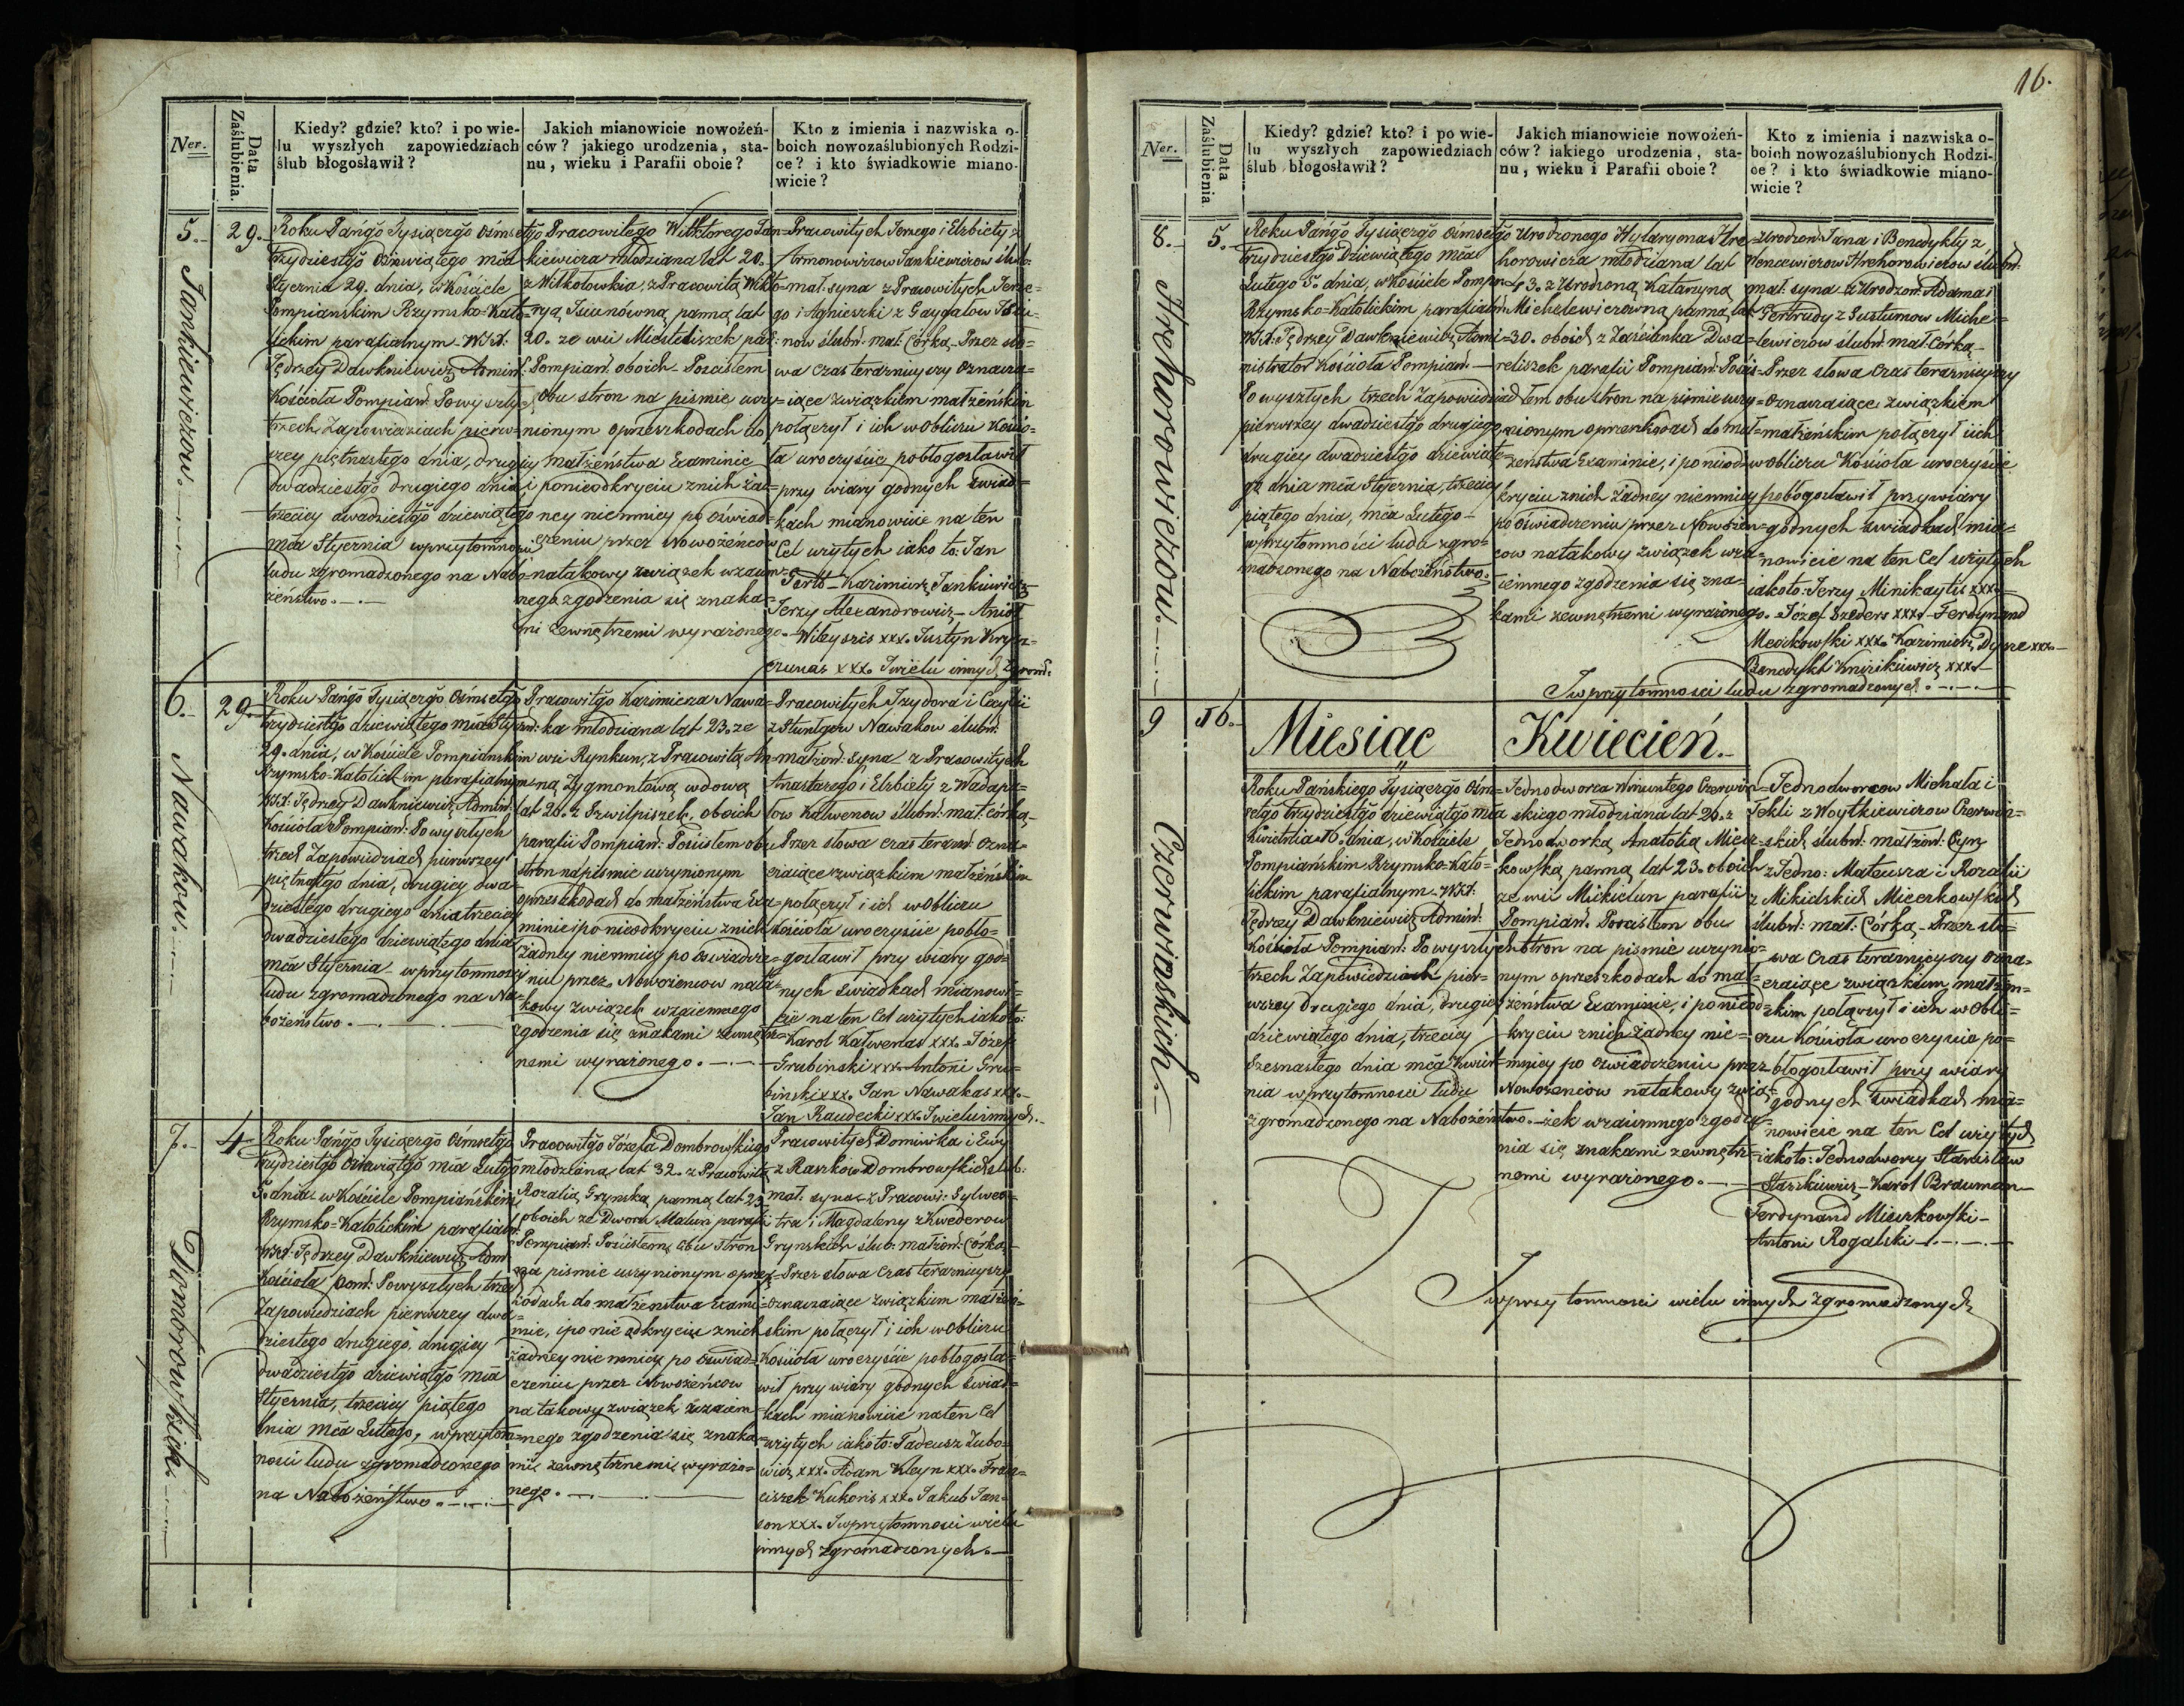 Ner.
Data Zaślubienia.
Kiedy? gdzie? kto? i po wie-
lu wyszłych zapowiedziach
ślub błogosławił?
Jakich mianowicie nowożeń-
ców? jakiego urodzenia, sta-
nu, wieku i Parafii oboie?
Kto z imienia i nazwiska o-
boich nowozaślubionych Rodzi-
ce? i kto świadkowie miano-
wicie?
5.
Jankiewiczow.
29.
Roku Pańgo Tysiącgo Ośmsetgo
trzydziestgo dziewiątego mca
Stycznia 29. dnia, w Kościele
Pompianskim Rzymsko=Kato=
lickim parafialnym
Jędrzey Dawkniewicz Admin:
Kościoła Pompiań: Powyszłych
trzech Zapowiedziach pierw=
szey piętnastego dnia, drugiey
dwadziestgo drugiego dnia
trzeciey dwadziestgo dziewiątego
mca Stycznia w przytomności
ludu zgromadzonego na Nabo=
żeństwo.
Pracowitego Wiktorego Jan=
kiewicza młodziana lat 20.
z Pracowitą Wikto=
ryą panną lat
20. ze wsi par:
Pompiań: oboich. Pościsłem
obu stron na pismie uczy=
nionym o przeszkodach do
Małżeństwa Examinie
i ponieodkryciu znich żad=
ney niemniey po oświad=
czeniu przez Nowożeńcow
natakowy związek wzaiem=
nego zgodzenia się znaka=
mi zewnętrznemi wyrażonego.
Pracowitych Jerzego i Elzbiety z
Jankiewiczow ślub:
mał: syna z Pracowitych
i Agnieszki z Gaygałow
ślubn: mał: Córką. Przez sło=
wa czas teraznieyszy oznacza=
iące związkiem małżeńskim
połączył i ich w obliczu Kościo=
ła uroczyście pobłogosławił
przy wiary godnych świad=
kach mianowicie na ten
Cel wziętych iako to: Jan
Kazimierz Jankiewicz
Jerzy Alexandrowicz
xxx. Justyn
xxx. I wielu innych zgrom:
6.
Nawakow.
29.
Roku Pańgo Tysiącgo Ośmsetgo
trzydziestgo dziewiątego mca Styczn:
29. dnia, w Kościele Pompianskim
Rzymsko=Katolickim parafialnym
Jędrzey Dawkniewicz Admin:
Kościoła Pompiań: Powyszłych
trzech Zapowiedziach pierwszey
piętnastgo dnia, drugiey dwa=
dziestego drugiego dnia trzeciey
dwadziestego dziewiątego dnia
mca Stycznia w przytomności
ludu zgromadzonego na Na=
bożeństwo.
Pracowitgo Kazimierza Nawa=
ka młodziana lat 23. ze
wsi Rynkun, z Pracowitą An=
ną Zygmontową wdową
lat 20. z Szwilpiszek, oboich
parafii Pompiań: Pościsłem obu
stron na pismie uczynionym
oprzeszkodach do małżeństwa Exa=
minie i ponieodkryciu znich
żadney niemniey po oświadcze=
niu przez Nowożeńcow nata=
kowy związek wzaiemnego
zgodzenia się znakami zewnętrz=
nemi wyrażonego.
Pracowitych Izydora i Cecylii
z Nawakow ślubn:
małżoń: syna z Pracowitych
Anastazego i Elzbiety z
Katwenow ślubn: mał: Córką.
Przez słowa czas terazn: ozna=
czaiące związkiem małżeńskim
połączył i ich w obliczu
Kościoła uroczyście pobło=
gosławił przy wiary god=
nych świadkach mianowi=
cie na ten Cel wziętych iako to:
Karol Katwenas xxx. Józef
Grubinski xxx. Antoni Gru=
binski xxx. Jan Nawakas xxx.
Jan Raudecki xxx. I wielu innych.
7.
Dombrowskich.
4
Roku Pańgo Tysiącgo Ośmsetgo
trzydziestgo dziewiątgo mca Lutgo
5. dnia w Kościele Pompianskim
Rzymsko=Katolickim parafialn:
Jędrzey Dawkniewicz Adm:
Kościoła Pom: Powyszłych trzech
Zapowiedziach pierwszey dwa=
dziestego drugiego, drugiey
dwadziestgo dziewiątgo mca
Stycznia, trzeciey piątego
dnia mca Lutego, w przytom=
ności ludu zgromadzonego
na Nabożeństwo.
Pracowitgo Józefa Dombrowskiego
młodziana, lat 32. z Pracowitą
Rozalią Grynską panną lat 23.
oboich ze Dworu Malun parafii
Pompiań: Pościsłem obu stron
na pismie uczynionym oprzesz=
kodach do małżeństwa Exami=
nie, i po nieodkryciu znich
żadney niemniey po oświad=
czeniu przez Nowożeńcow
na takowy związek wzaiem=
nego zgodzenia się znaka=
mi zewnętrznemi wyrażo=
nego.
Pracowitych Dominika i Ewy
z Raszkow Dombrowskich ślub:
mał: syna z Pracowi: Sylwes=
tra i Magdaleny z Kwederow
Grynskich ślub: małżoń: Córką
Przez słowa czas teraznieyszy
oznaczaiące związkiem małżeń=
skim połączył i ich w obliczu
Kościoła uroczyście pobłogosła=
wił przy wiary godnych świad=
kach mianowicie na ten Cel
wziętych iako to: Tadeusz Zubo=
wicz xxx. Adam Kleyn xxx. Fran=
ciszek Kukoris xxx. Jakub Jan=
son xxx. I w przytomności wielu
innych zgromadzonych.
16.
Ner.
Data Zaślubienia
Kiedy? gdzie? kto? i po wie-
lu wyszłych zapowiedziach
ślub błogosławił?
Jakich mianowicie nowożeń-
ców? iakiego urodzenia, sta-
nu, wieku i Parafii oboie?
Kto z imienia i nazwiska o-
boich nowozaślubionych Rodzi-
ce? i kto świadkowie miano-
wicie?
8.
Hrehorowiczow.
5.
Roku Pańgo Tysiącgo Ośmsetgo
trzydziestgo Dziewiątego mca
Lutego 5. dnia, w Kościele Pomp:
Rzymsko=Katolickim parafialn:
Jędrzey Dawkniewicz Admi=
nistrator Kościoła Pompiań:
Powyszłych trzech Zapowiedziach
pierwszey dwadziestgo drugiego,
drugiey dwadziestgo dziewiąte=
go dnia mca Stycznia, trzeciey
piątego dnia, mca Lutego
w przytomności ludu zgro=
madzonego na Nabożeństwo.
Urodzonego Hylaryona Hre=
horowicza młodziana lat
43. z Urodzoną Katarzyną
Michelewiczowną panną lat
30. oboich z Zaścianka Dwa=
reliszek parafii Pompiań: Pości=
słem obu stron na pismie uczy=
nionym oprzeszkodach do mał=
żeństwa Examinie, i po nieod=
kryciu znich żadney niemniey
po oświadczeniu przez Nowożeń=
cow natakowy związek wza=
iemnego zgodzenia się zna=
kami zewnętrznemi wyrażonego.
Urodzon: Jana i Benedykty z
Hrehorowiczow ślubn:
mał: syna z Urodzon: Adama i
Gertrudy z Miche=
lewiczow ślubn: mał: Corką
Przez słowa czas teraznieyszy
oznaczaiące związkiem
małżeńskim połączył i ich
w obliczu Kościoła uroczyście
pobłogosławił przy wiary
godnych świadkach mia=
nowicie na ten Cel wziętych
iako to: Jerzy Minikaytis xxx.
Józef Szeders xxx. Ferdynand
Mieczkowski xxx. Kazimierz xxx.
Benedykt xxx.
I w przytomności ludu zgromadzonych.
9
Czerwinskich.
16.
Miesiąc Kwiecień.
Roku Pańskiego Tysiącgo Ośm=
setgo trzydziestgo dziewiątgo mca
Kwietnia 16. dnia, w Kościele
Pompiańskim Rzymsko=Kato=
lickim parafialnym
Jędrzey Dawkniewicz Admin:
Kościoła Pompiań: Powyszłych
trzech Zapowiedziach pier=
wszey drugiego dnia, drugiey
dziewiątego dnia, trzeciey
szesnastego dnia mca Kwiet=
nia w przytomności ludu
zgromadzonego na Nabożeństwo.
Jednodworca Wincentego Czerwin=
skiego młodziana lat 26. z
Jednodworką Anatolią Miecz=
kowską panną lat 23. oboich
ze wsi Mikielun parafii
Pompiań: Pościsłem obu
stron na pismie uczynio=
nym oprzeszkodach do mał=
żeństwa Examinie, i po nieod=
kryciu znich żadney nie=
mniey po oświadczeniu przez
Nowożeńcow natakowy zwią=
zek wzaiemnego zgodze=
nia się znakami zewnętrz=
nemi wyrażonego.
Jednodworcow Michała i
Tekli z Woytkiewiczow Czerwin=
skich ślubn: małżoń: Syn,
z Jedno: Mateusza i Rozalii
z Mikielskich Mieczkowskich
ślubn: mał: Córką. Przez sło=
wa czas teraznieyszy ozna=
czaiące związkiem małżeń=
skim połączył i ich w obli=
czu Kościoła uroczyscie po=
błogosławił przy wiary
godnych świadkach mia=
nowicie na ten Cel wziętych
iako to: Jednodworcy Stanisław
Staszkiewicz Karol Brauman
Ferdynand Mieczkowski
Antoni Rogalski
I w przytomności wielu innych zgromadzonych